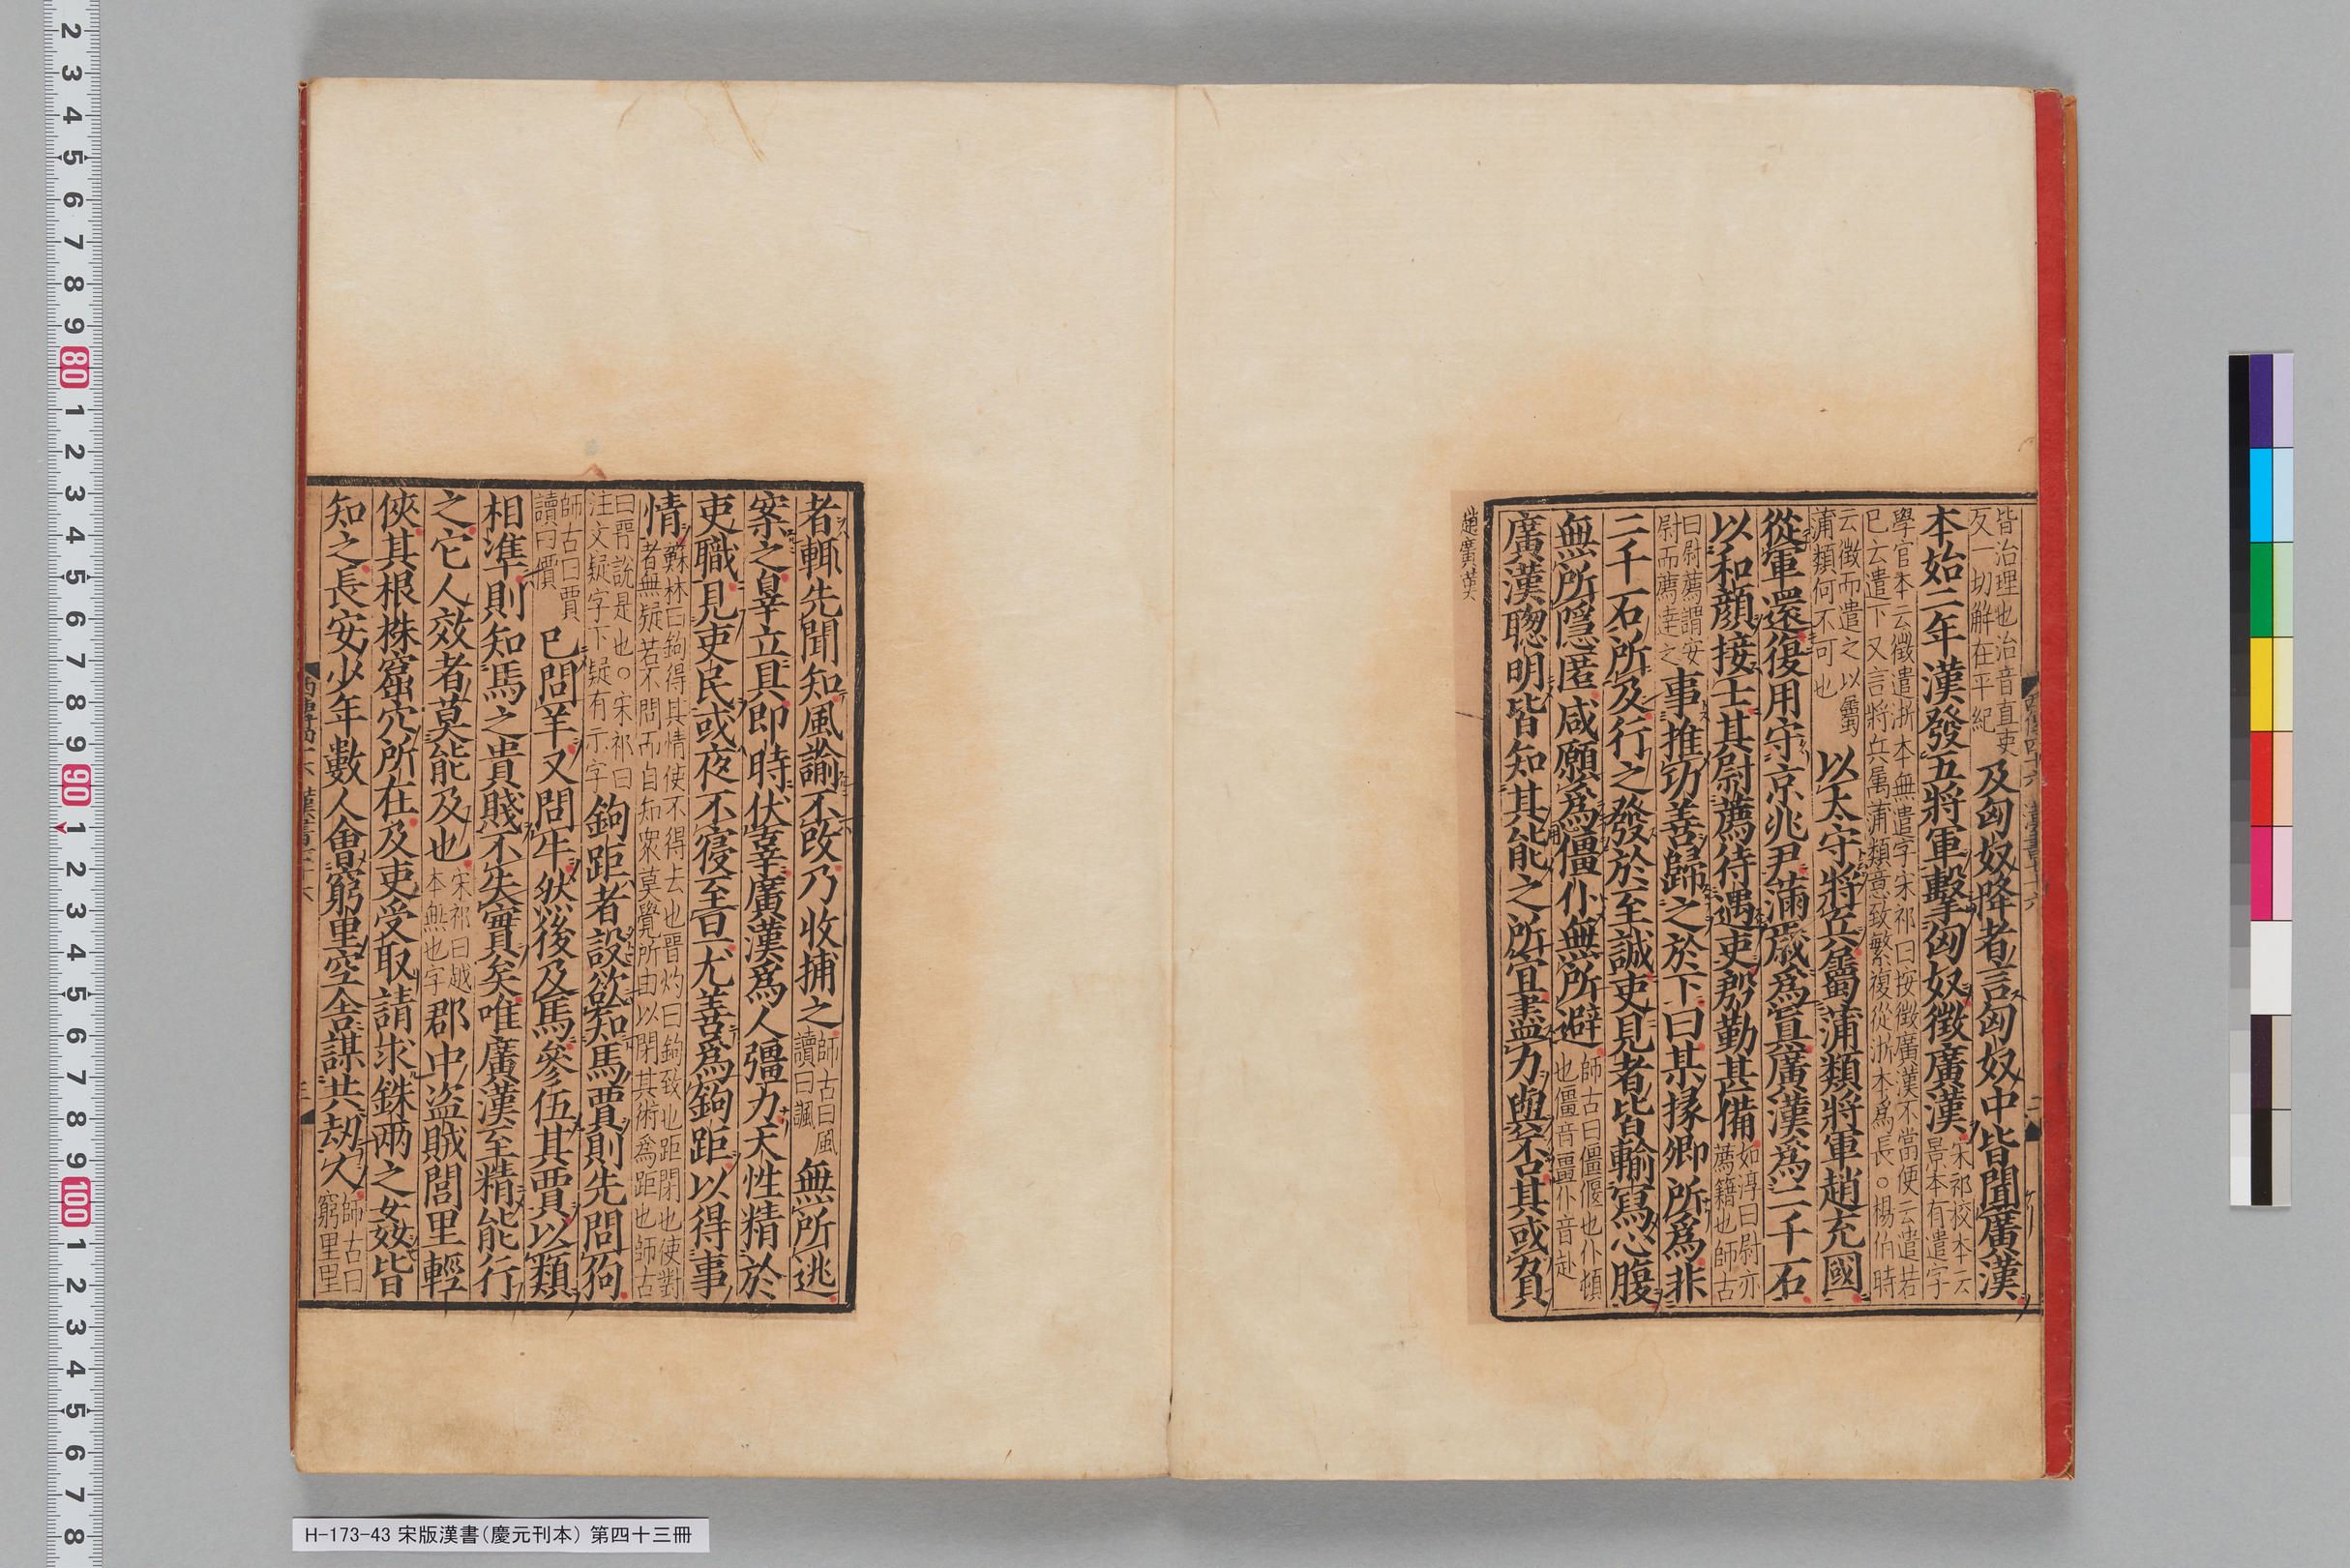 皆治理也治音直吏
反一切解在平紀
及匈奴降者言匈奴中皆聞廣漢
本始二年漢發五將軍擊匈奴徵廣漢
宋祁校本云
景本有遣字
學官本云徵遣浙本無遣字宋祁曰按徵廣漢不當便云遣若
已云遣下又言將兵属蒲類意致繁複從浙本爲長○楊伯時
云徵而遣之以屬
蒲類何不可也
以太守將兵屬蒲類將軍趙充國
從軍還復用守京兆尹滿歲爲眞廣漢爲二千石
以和顏接士其尉薦待遇吏殷勤甚備
如淳曰尉亦
薦籍也師古
曰尉薦謂安
尉而薦達之
事推功善歸之於下曰某掾卿所爲非
二千石所及行之發於至誠吏見者皆輸寫心腹
無所隱匿咸願爲用僵仆無所避
師古曰僵偃也仆頓
也僵音畺仆音赴
廣漢聰明皆知其能之所宜盡力與不其或負
趙廣漢
者輒先聞知風諭不改乃收捕之
師古曰風
讀曰諷
無所逃
案之辠立具即時伏辜廣漢爲人彊力天性精於
吏職見吏民或夜不寢至旦尤善爲鉤距以得事
情
蘇林曰鉤得其情使不得去也晋灼曰鉤致也距閉也使對
者無疑若不問而自知衆莫覺所由以閉其術爲距也師古
曰晋說是也○宋祁曰
注文疑字下疑有示字
鉤距者設欲知馬賈則先問狗
師古曰賈
讀曰價
已問羊又問牛然後及馬參伍其賈以類
相準則知馬之貴賤不失實矣唯廣漢至精能行
之它人效者莫能及也
宋祁曰越
本無也字
郡中盜賊閭里輕
俠其根株窟穴所在及吏受取請求銖兩之姦皆
知之長安少年數人會窮里空舍謀共劫人
師古曰
窮里里
H-173-43 宋版漢書（慶元刊本） 第四十三冊